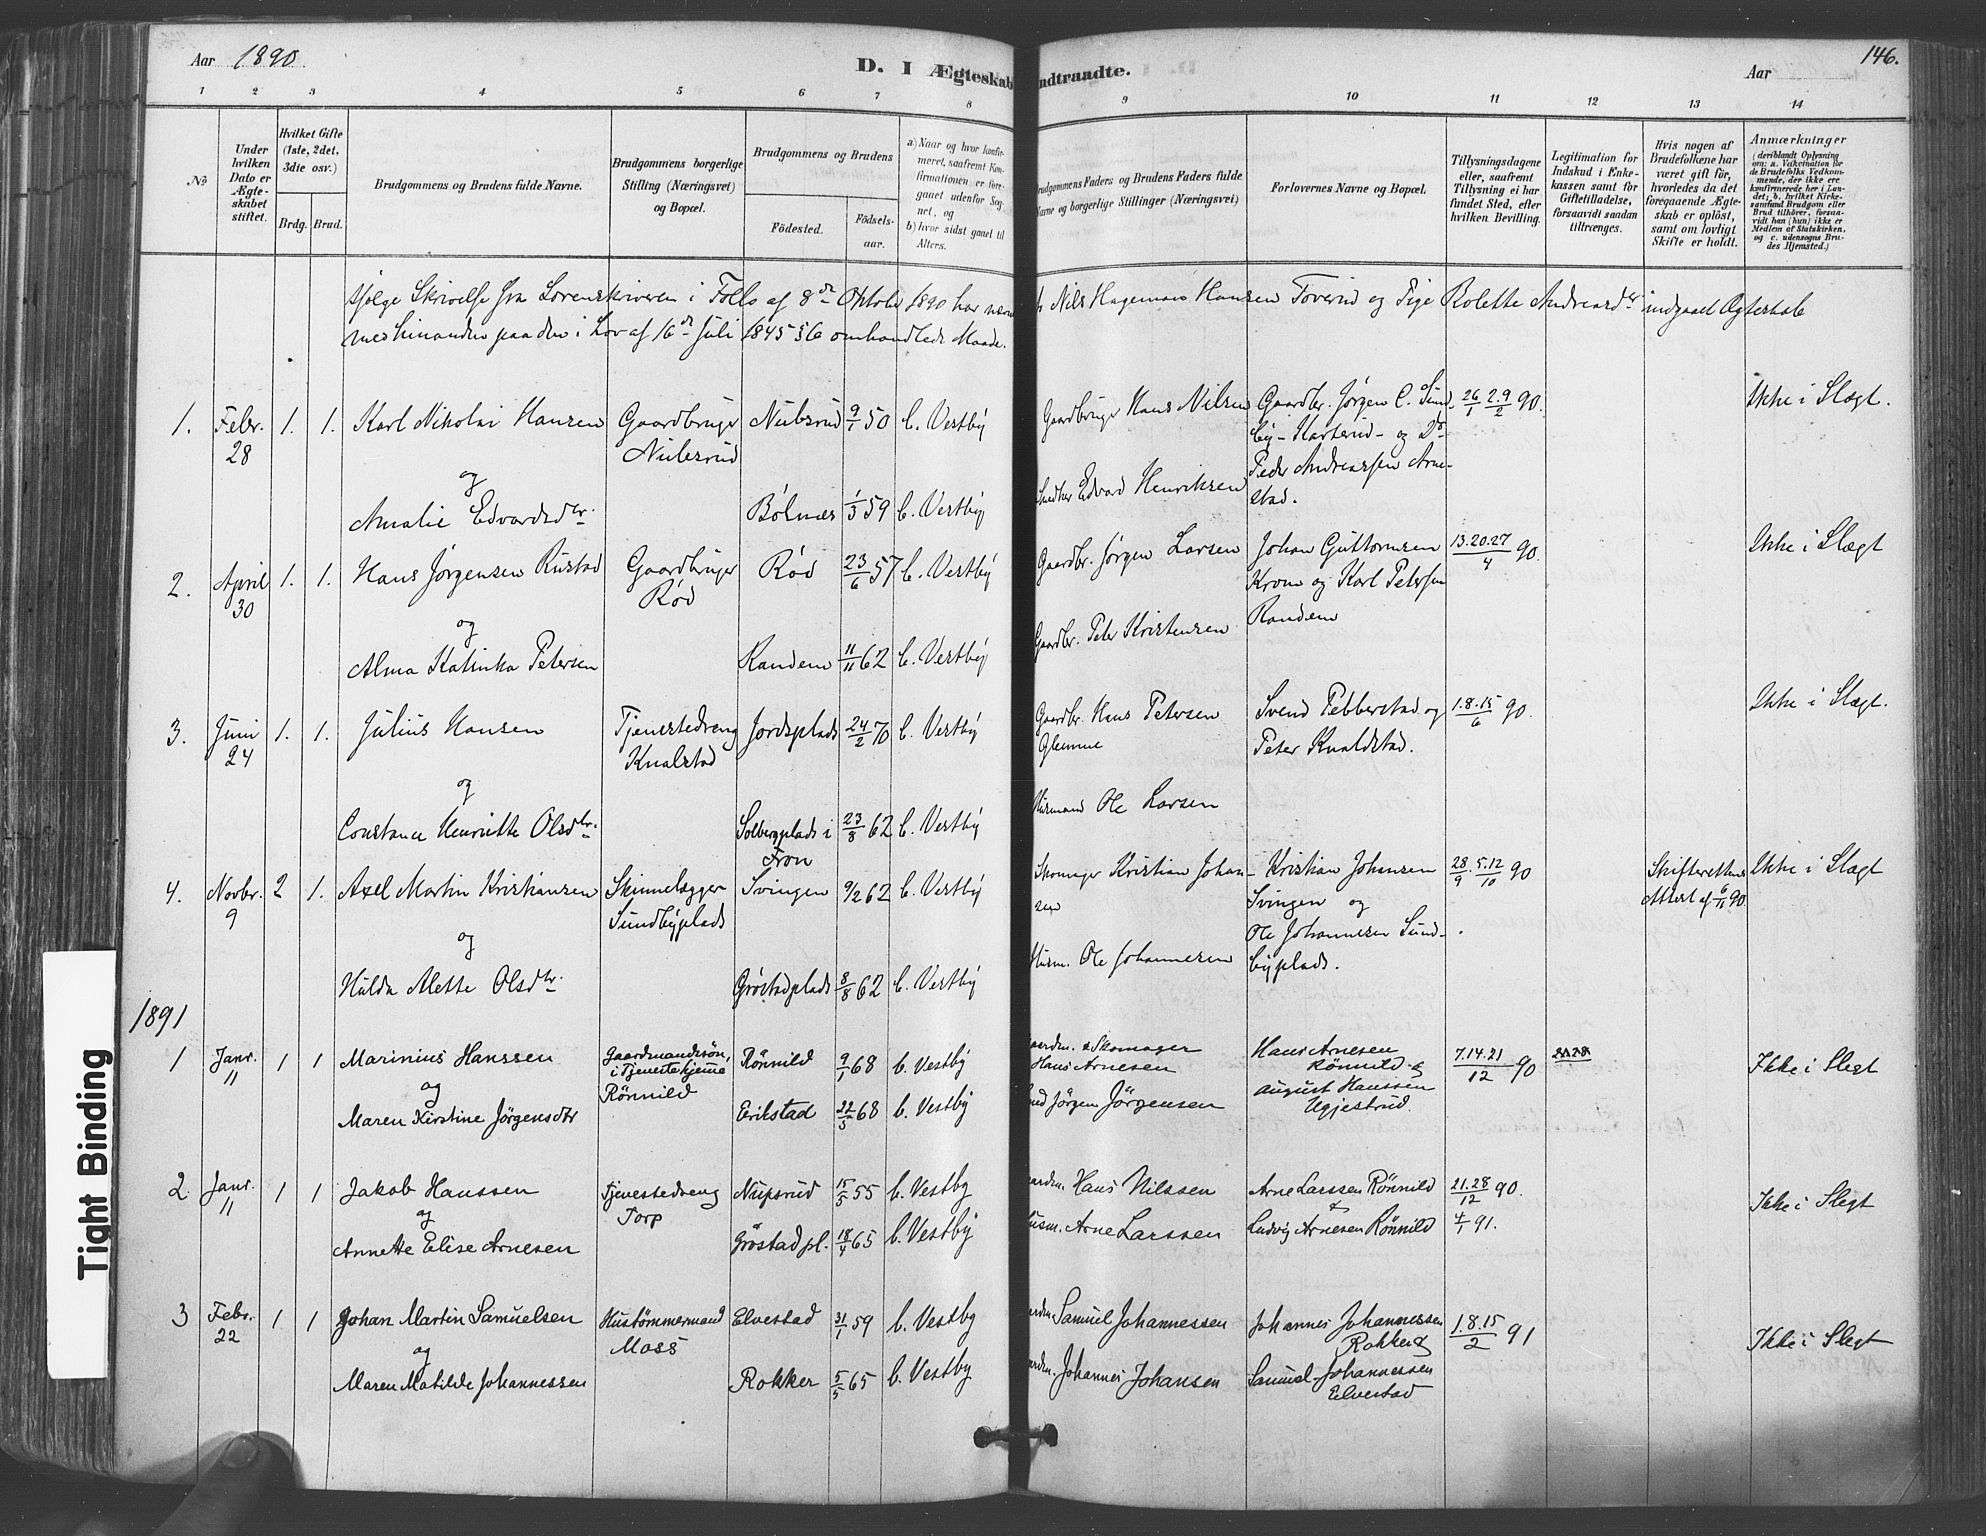 Aar 1890.
D. I Ægteskab
ndtraadte.
Aar
146.
1 2 3 4 5 6 7 8 9 10 11 12 13 14
№
Under hvilken Dato er Ægteskabet stiftet.
Hvilket Gifte (1ste, 2det, 3die osv.)
Brdg. Brud.
Brudgommens og Brudens fulde Navne.
Brudgommens borgerlige Stilling (Næringsvei) og Bopæl.
Brudgommens og Brudens
Fødested.
Fødselsaar.
a) Naar og hvor konfirmeret, saafremt Konfirmationen er foregaaet udenfor Sognet, og
b) hvor sidst gaaet til Alters.
rudgommens Faders og Brudens Faders fulde
avne og borgerlige Stillinger (Næringsvei)
Forlovernes Navne og Bopæl.
Tillysningsdagene eller, saafremt Tillysning ei har fundet Sted, efter hvilken Bevilling.
Legitimation for Indskud i Enkekassen samt for Giftetilladelse, forsaavidt saadan tiltrænges.
Hvis nogen af Brudefolkene har været gift før, hvorledes da det foregaaende Ægteskab er opløst, samt om lovligt Skifte er holdt.
Anmærkninger
(deriblandt Oplysning om: a. Vakcination for de Brudefolks Vedkommende, der ikke ere konfirmerede her i Landet; b. hvilket Kirkesamfund Brudgom eller Brud tilhører, forsaavidt han (hun) ikke er Medlem af Statskirken, og c. udensogns Brudes Hjemsted.)
ifølge Skrivelse fra Sorenskriveren i Follo af 8de Oktober 1890 har Nils Hageman Hansen Toverud og Pige Bolette Andreasdr indgaaet Ægteskab
med hinanden paa den i Lov af 16de Juli 1845 § 6 omhandlede Maade.
1. Febr. 28 1. 1. Karl Nikolai Hansen Gaardbruger Nubsrud Nubsrud 9/1 50 b. Vestby Gaardbruger Hans Nilsen Gaardbr. Jørgen C. Sundby - Karterud - og Do Peder Andreassen Arnestad. 26/1 2.9/2 90. Ikke i Slægt.
og
Amalie Edvardsdr. Bölnæs 1/3 59 b. Vestby Snedker Edvard Henriksen
2. April 30 1. 1. Hans Jørgensen Rustad Gaardbruger Rød Rød 23/6 57 b. Vestby Gaardbr. Jørgen Larsen Johan Guttormsen Krom og Karl Petersen Randem 13.20.27/4 90. Ikke i Slægt
og
Alma Katinka Petersen Randem 11/11 62 b. Vestby Gaardbr. Peter Kristensen
3. Juni 24 1. 1. Julius Hansen Tjenestedreng Knalstad Jordsplads 24/2 70 b. Vestby Gaardbr. Hans Petersen Glenne Svend Pebberstad og Peter Knaldstad. 1.8.15/6 90. Ikke i Slægt.
og
Constance Henriette Olsdtr. Solbergplads i Fron 23/8 62 b. Vestby Husmand Ole Larsen
4. Novbr. 9 2 1. Axel Martin Kristiansen Skinnelægger Sundbyplads Svingen 9/2 62 b. Vestby Skomager Kristian Johansen Kristian Johansen Svingen og Ole Johannesen Sundbyplads. 28/9. 5.12/10 90 Skifterettens Attest af 6/11 90. Ikke i Slægt
og
Hulda Alette Olsdtr. Gröstadplads 8/8 62 b. Vestby Husm. Ole Johannesen
1891
1 Janr. 11 1 1 Marinius Hanssen Gaardmandssön, i Tjeneste hjemme Rönnild Rönnild 9/1 68 b. Vestby aardm. & Skomager Hans Arnesen Hans Arnesen Rönnild & August Hanssen Ugjestrud. 7.14.21/12 90 Ikke i Slegt
og
Maren Kirstine Jörgensdtr Erikstad 22/5 68 b. Vestby Jörgen Jörgensen
2 Janr. 11 1 1 Jakob Hanssen Tjenestedreng Torp Nupsrud 15/5 55 b. Vestby aardm. Hans Nilssen Arne Larssen Rönnild & Ludvig Arnesen Rönnild 21.28/12 90. 4/1 91. Ikke i Slegt
og
Annette Elise Arnesen Gröstad pl. 18/4 65 b. Vestby Husm. Arne Larssen
3 Febr. 22 1 1 Johan Martin Samuelsen Hustömmermand Moss Elvestad 31/1 59 b. Vestby aardm. Samuel Johannessen Johannes Johannessen Rokker & Samuel Johannessen Elvestad 1.8.15/2 91 Ikke i Slegt
og
Maren Matilde Johannessen Rokker 5/5 65 b. Vestby aardm. Johannes Johansen
Tight Binding